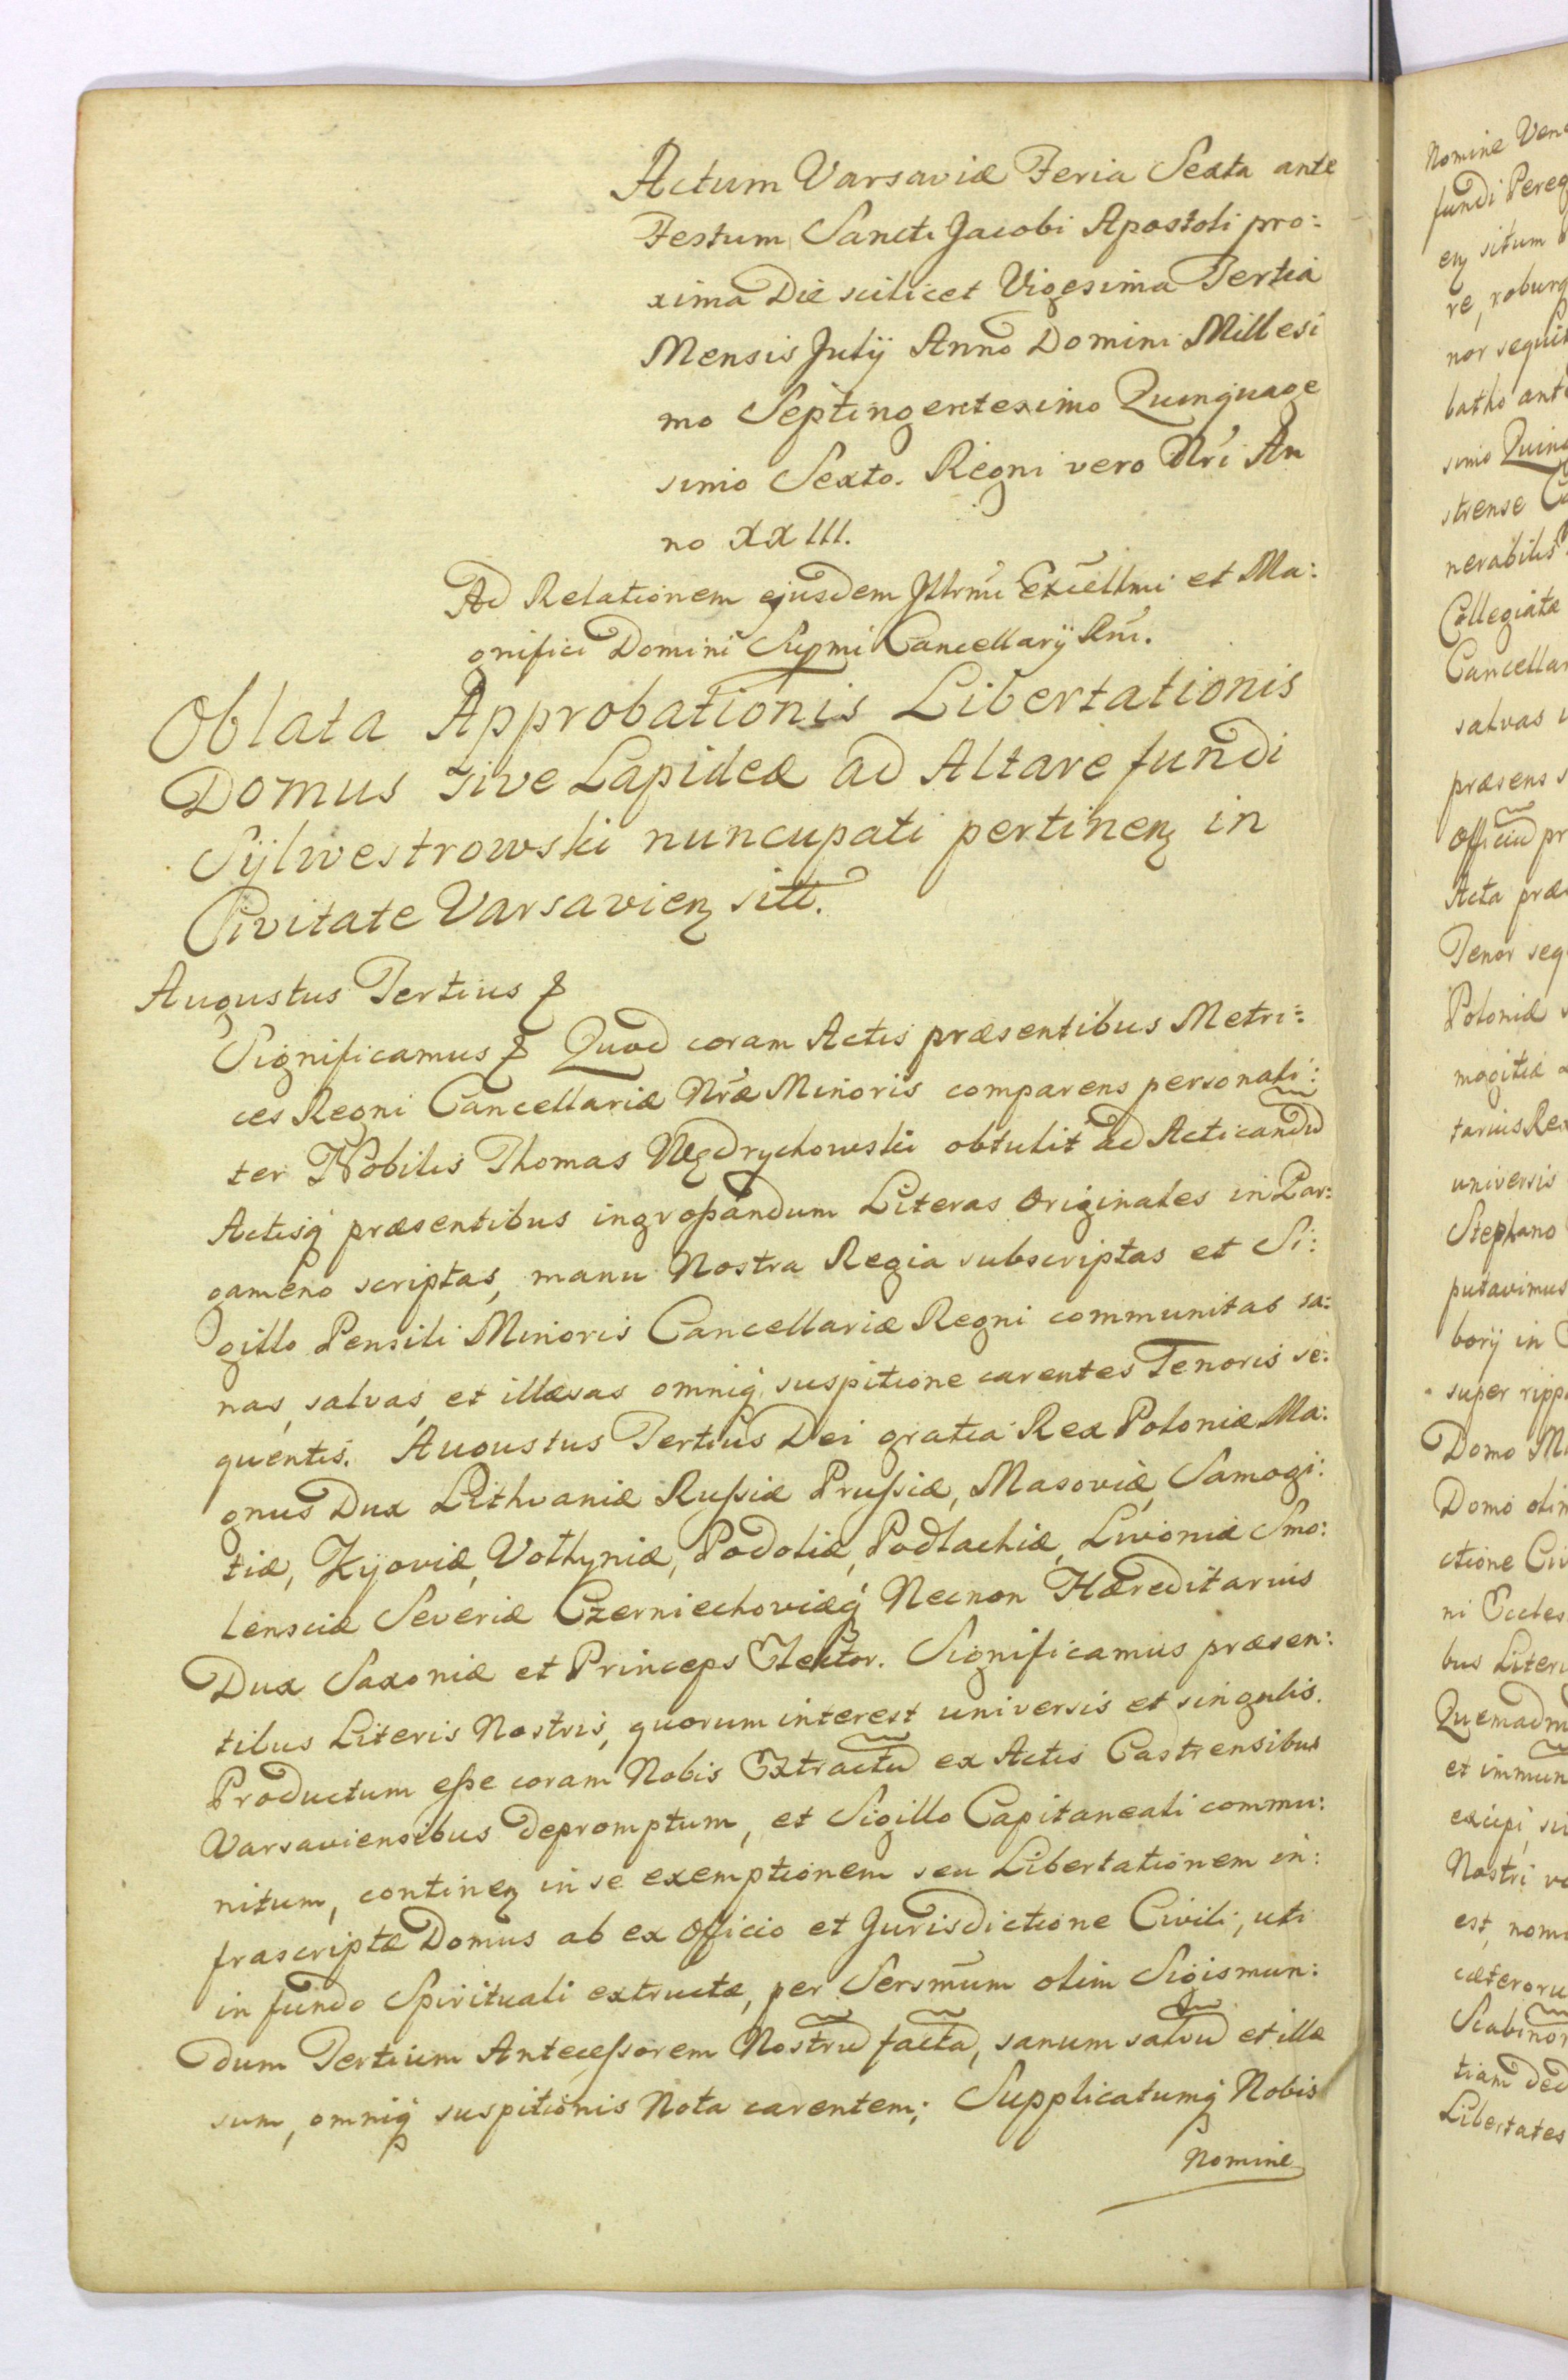 Actum Varsaviæ Feria Sexta ante
Festum Sancti Jacobi Apostoli pro:
xima Die scilicet Vigesima Tertia
Mensis Julij Anno Domini Millesi
mo Septingentesimo Quinquage
simo Sexto. Regni vero Nr̃i An
no XXIII.
Ad Relationem ejusdem Jllrm̃i Excellm̃i et Ma:
gnifici Domini Supmi Cancellarij Rn̄i.
Oblata Approbationis Libertationis
Domus sive Lapideæ ad Altare fundi
Sÿlwestrowski nuncupati pertinenꝫ in
Civitate Varsavienꝫ sitt.
Augustus Tertius &
Significamus & Quod coram Actis præsentibus Metri:
ces Regni Cancellariæ Nr̃æ Minoris comparens personali:
ter Nobilis Thomas Wędrychowski obtulit ad Acticandũ
Actisq̷ præsentibus ingroſsandum Literas Originales in Par:
gameno scriptas, manu Nostra Regia subscriptas et Si:
gillo Pensili Minoris Cancellariæ Regni communitas sa:
nas, salvas, et illæsas omniq̷ suspitione carentes Tenoris se:
quentis. Augustus Tertius Dei gratia Rex Poloniæ Ma:
gnus Dux Lithvaniæ Ruſsiæ Pruſsiæ, Masoviæ, Samogi:
tiæ, Kijoviæ, Volhyniæ, Podoliæ, Podlachiæ, Livoniæ Smo:
lensciæ Severiæ Czerniechoviæq̷ Necnon Hæreditarius
Dux Saxoniæ et Princeps Elector. Significamus præsen:
tibus Literis Nostris, quorum interest universis et singulis.
Productum eſse coram Nobis Extractũ ex Actis Castrensibus
Varsaviensibus depromptum, et Sigillo Capitaneali commu:
nitum, continenꝫ in se exemptionem seu Libertationem in:
frascriptæ Domus ab ex Officio et Jurisdictione Civili, uti
in fundo Spirituali extructæ, per Sersm̃um olim Sigismun:
dum Tertium Anteceſsorem Nostrũ factã, sanum salvũ et illæ
sum, omniq̷ suspitionis Nota carentem; Supplicatumq̷ Nobis
Nomine
Nomine
fundi
situm
re,
nor
batho
simo
strense
nerabilis
Collegiatæ
salvas
præsens
Officiũ
Acta
Tenor
Poloniæ
universis
Stephano
putavimus
borij in
super
Domo
Domo
ctione
ni
bus
et
excipi,
Nostri
est,
tiam
Libertates